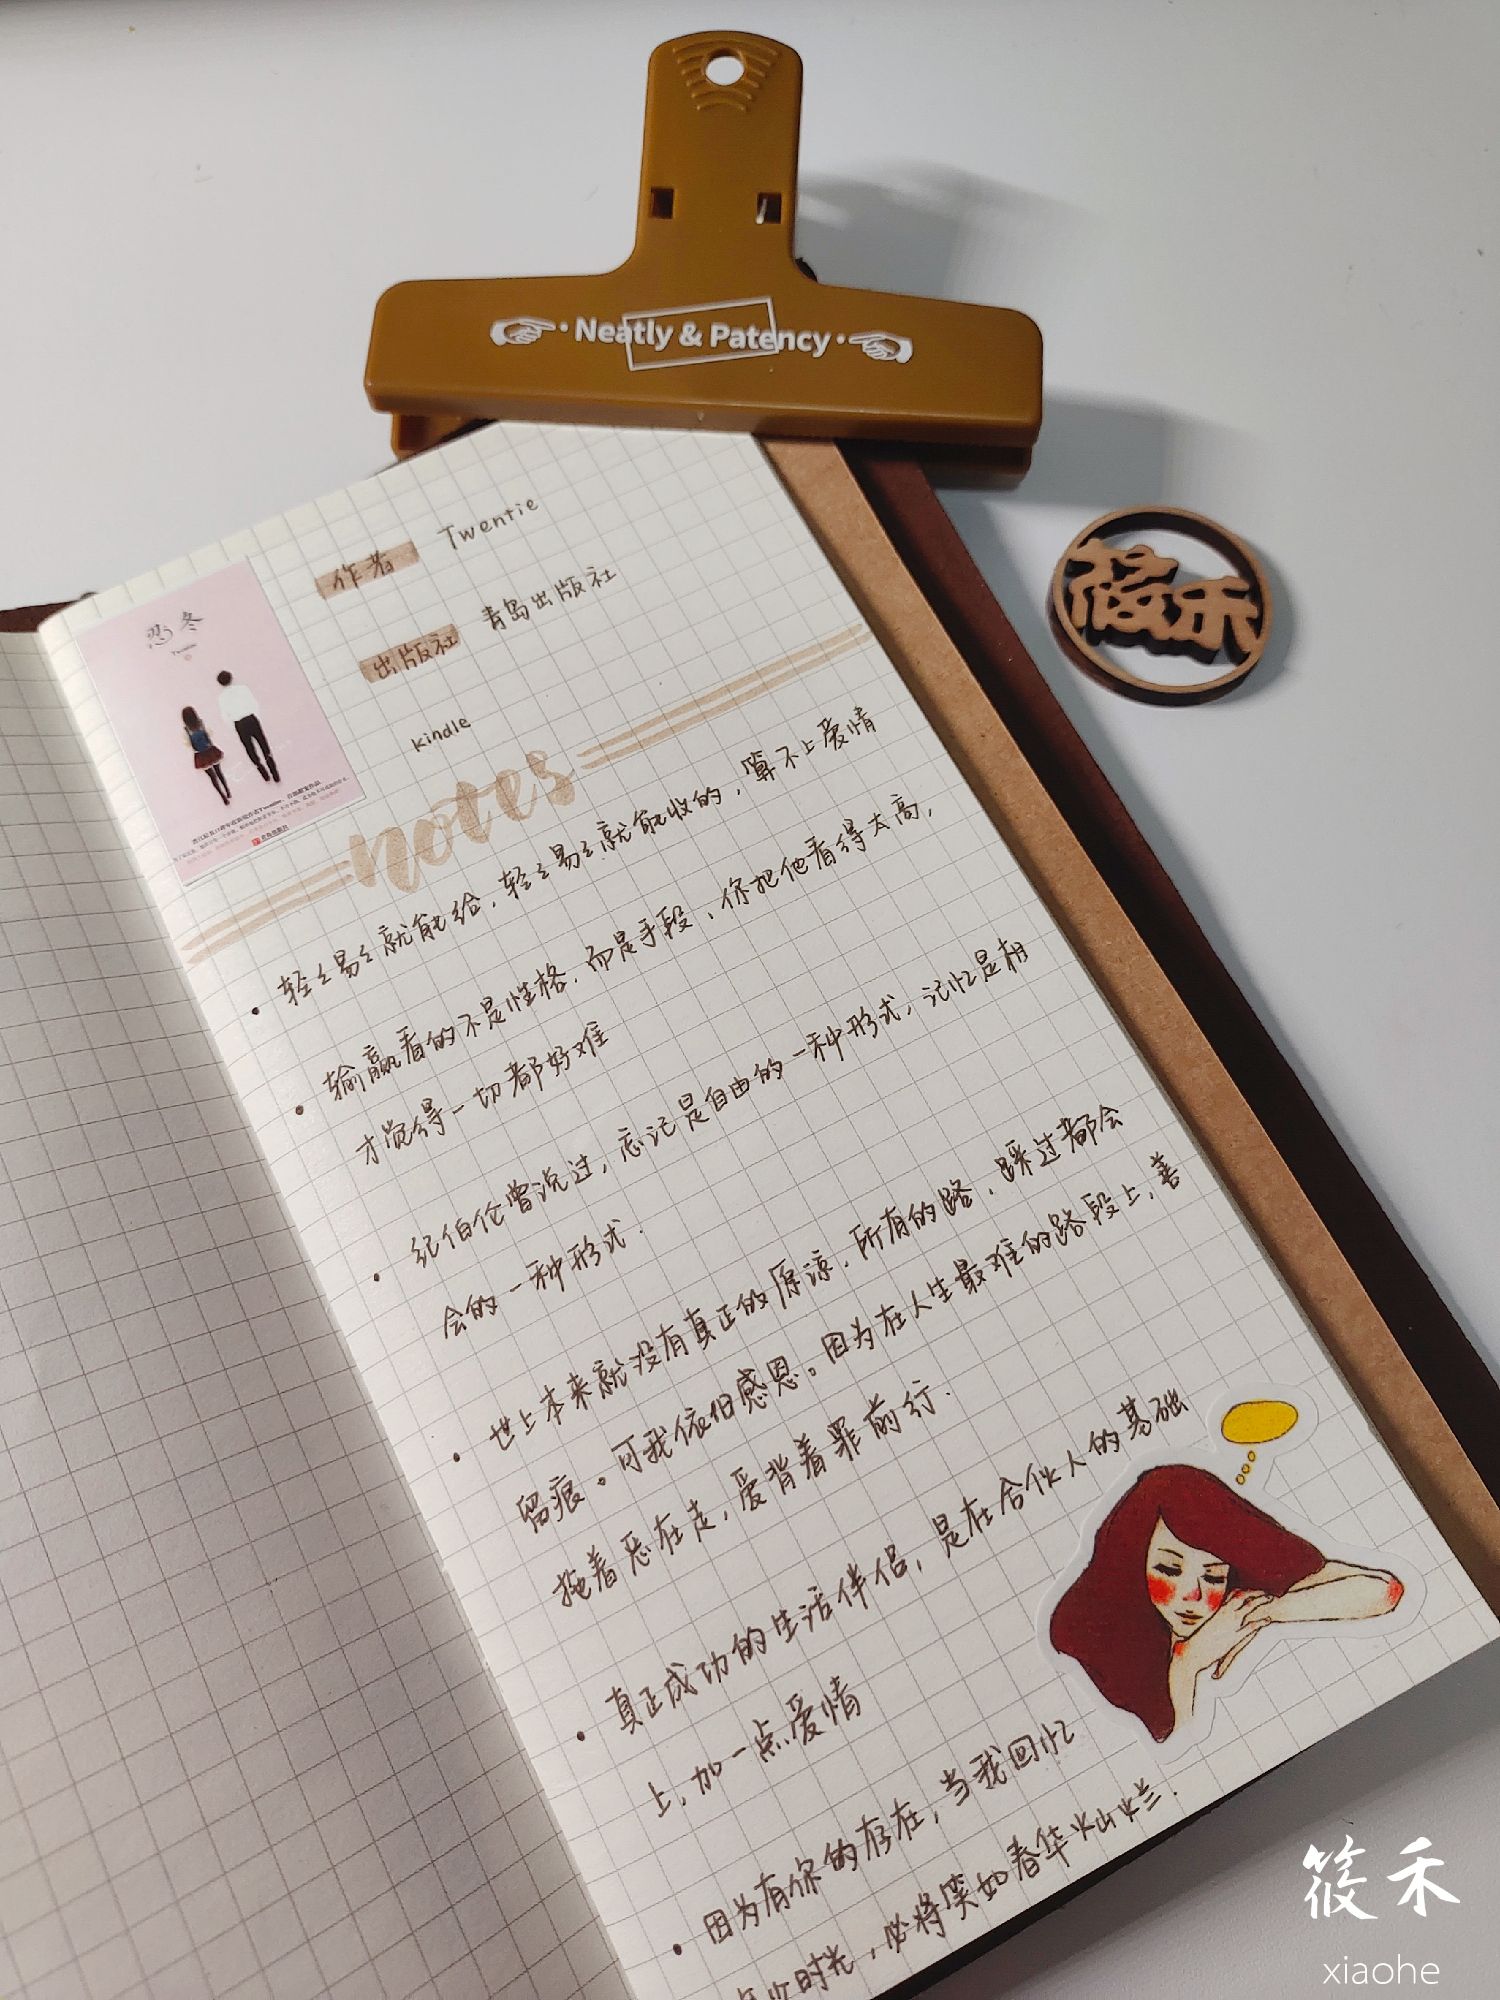 Neatly & Patency
筱禾
忍冬
Twentine
作者 Twentie
出版社 青岛出版社
kindle
notes
• 轻轻易易就能给，轻轻易易就能收的，算不上爱情
• 输赢看的不是性格，而是手段，你把他看得太高，
才觉得一切都好难
• 纪伯伦曾说过，忘记是自由的一种形式，记忆是相
会的一种形式.
• 世上本来就没有真正的原谅，所有的路，踩过都会
留痕。可我依旧感恩。因为在人生最难的路段上，善
掩着恶在走，爱背着罪前行.
• 真正成功的生活伴侣，是在合伙人的基础
上，加一点爱情
• 因为有你的存在，当我回忆
时光，必将笑如春华灿烂.
筱禾
xiaohe